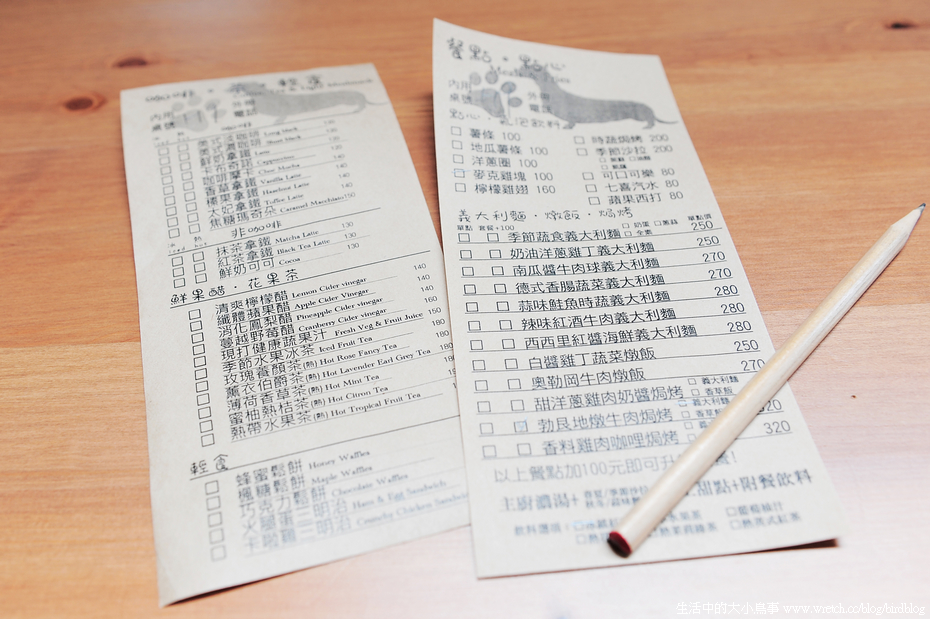 輕食
內用
桌號
外帶
電話
咖啡
美式淡咖啡 Long black 120
美式濃咖啡 Short black 120
鮮奶拿鐵 Latte
卡布奇諾 Cappuccino 120
咖啡摩卡 Choc Mocha 140
香草拿鐵 Vanilla Latte 140
榛果拿鐵 Hazelnut Latte 140
太妃拿鐵 Toffee Latte 140
焦糖瑪奇朵 Caramel Macchiato 150
非咖啡
抹茶拿鐵 Matcha Latte 130
紅茶拿鐵 Black Tea Latte 130
鮮奶可可 Cocoa 130
鮮果醋．花果茶
清爽檸檬醋 Lemon Cider vinegar 140
纖體蘋果醋 Apple Cider Vinegar 140
消化鳳梨醋 Pineapple Cider vinegar 140
蔓越野莓醋 Cranberry Cider vinegar 160
現打健康蔬果汁 Fresh Veg & Fruit Juice 150
季節水果冰茶 Iced Fruit Tea 180
玫瑰養顏茶(熱) Hot Rose Fancy Tea 180
薰衣伯爵茶(熱) Hot Lavender Earl Grey Tea
薄荷香草茶(熱) Hot Mint Tea
蜜柚熱桔茶(熱) Hot Citron Tea
熱帶水果茶(熱) Hot Tropical Fruit Tea
輕食
蜂蜜鬆餅 Honey Waffles
楓糖鬆餅 Maple Waffles
巧克力鬆餅 Chocolate Waffles
火腿蛋三明治 Ham & Egg Sandwich
卡啦雞三明治 Crunchy Chicken Sandwich
餐點．點心
內用
桌號
外帶
電話
薯條 100
地瓜薯條 100
洋蔥圈 100
麥克雞塊 100
檸檬雞翅 160
時蔬焗烤 200
季節沙拉 200
可口可樂 80
七喜汽水 80
蘋果西打 80
義大利麵．燉飯．焗烤
單點 套餐+100 單點價
季節蔬食義大利麵 奶蛋 蔥蒜 全素 250
奶油洋蔥雞丁義大利麵 250
南瓜醬牛肉球義大利麵 270
德式香腸蔬菜義大利麵 270
蒜味鮭魚時蔬義大利麵 280
辣味紅酒牛肉義大利麵 280
西西里紅醬海鮮義大利麵 280
白醬雞丁蔬菜燉飯 250
奧勒岡牛肉燉飯 270
甜洋蔥雞肉奶醬焗烤 義大利麵 香草飯
勃艮地燉牛肉焗烤 義大利麵 香草飯 320
香料雞肉咖哩焗烤 320
以上餐點加100元即可升
主廚濃湯+ 甜點+附餐飲料
飲料選項: 葡萄柚汁
熱英式紅茶
生活中的大小鳥事 www.wretch.cc/blog/birdblog